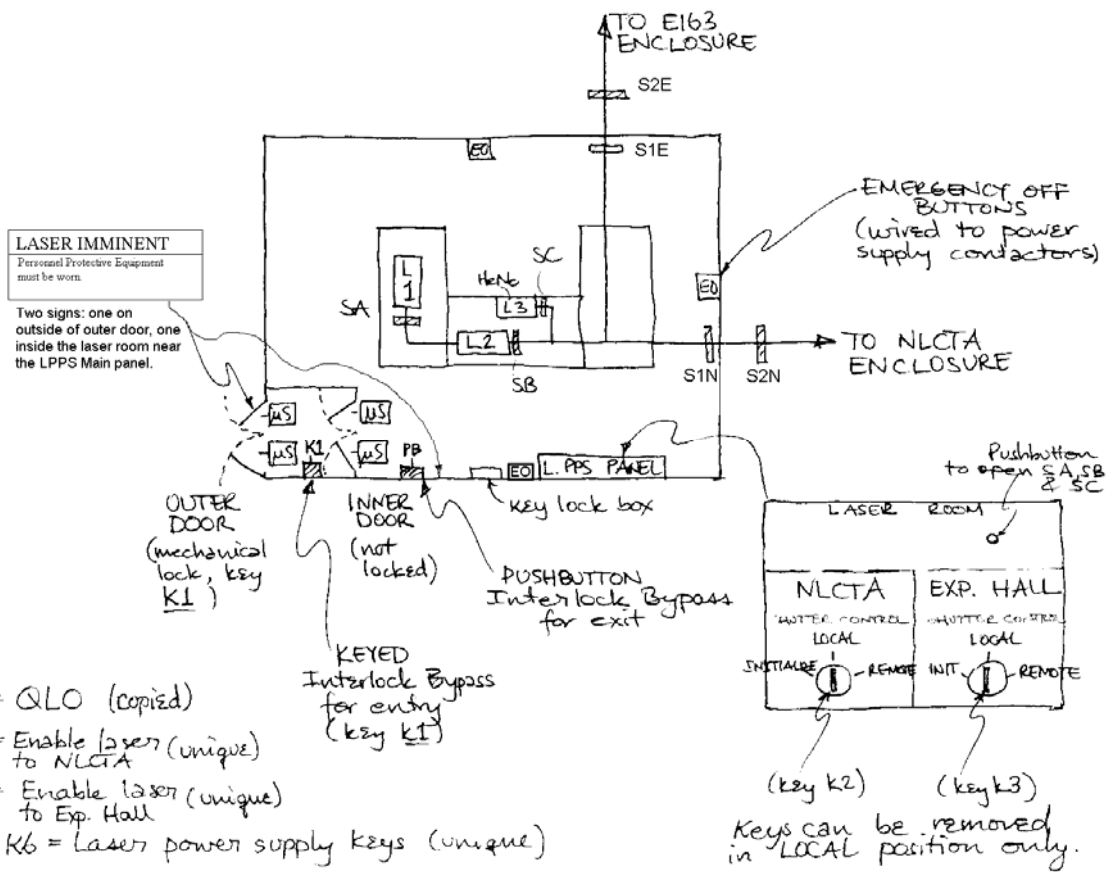 TO E163
ENCLOSURE
S2E
EO
S1E
EMERGENCY OFF
BUTTONS
(wired to power
supply contactors)
LASER IMMINENT
Personnel Protective Equipment
must be worn.
Two signs: one on
outside of outer door, one
inside the laser room near
the LPPS Main panel.
L
1
SA
HeNe
SC
L3
L2
SB
EO
S1N
S2N
TO NLCTA
ENCLOSURE
μS
μS
μS
K1
μS
PB
EO
L. PPS PANEL
key lock box
OUTER
DOOR
(mechanical
lock, key
K1)
INNER
DOOR
(not
locked)
PUSHBUTTON
Interlock Bypass
for exit
KEYED
Interlock Bypass
for entry
(key K1)
Pushbutton
to open SA, SB
& SC
LASER ROOM
NLCTA
SHUTTER CONTROL
LOCAL
INITIALIZE
REMOTE
EXP. HALL
SHUTTER CONTROL
LOCAL
INIT
REMOTE
(key k2)
(key k3)
Keys can be removed
in LOCAL position only.
= QLO (copied)
= Enable laser (unique)
to NLCTA
= Enable laser (unique)
to Exp. Hall
K6 = Laser power supply keys (unique)